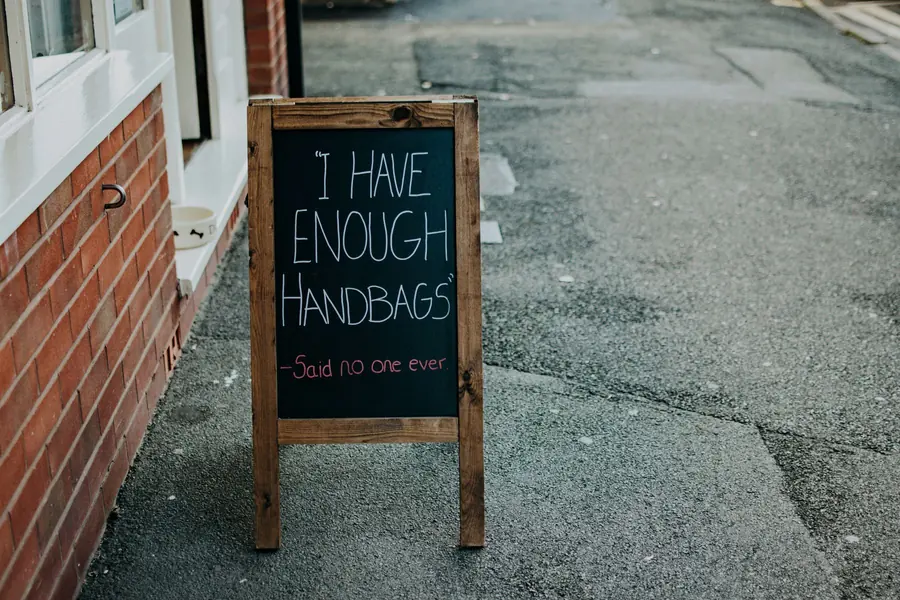 "I HAVE
ENOUGH
HANDBAGS"
-Said no one ever.